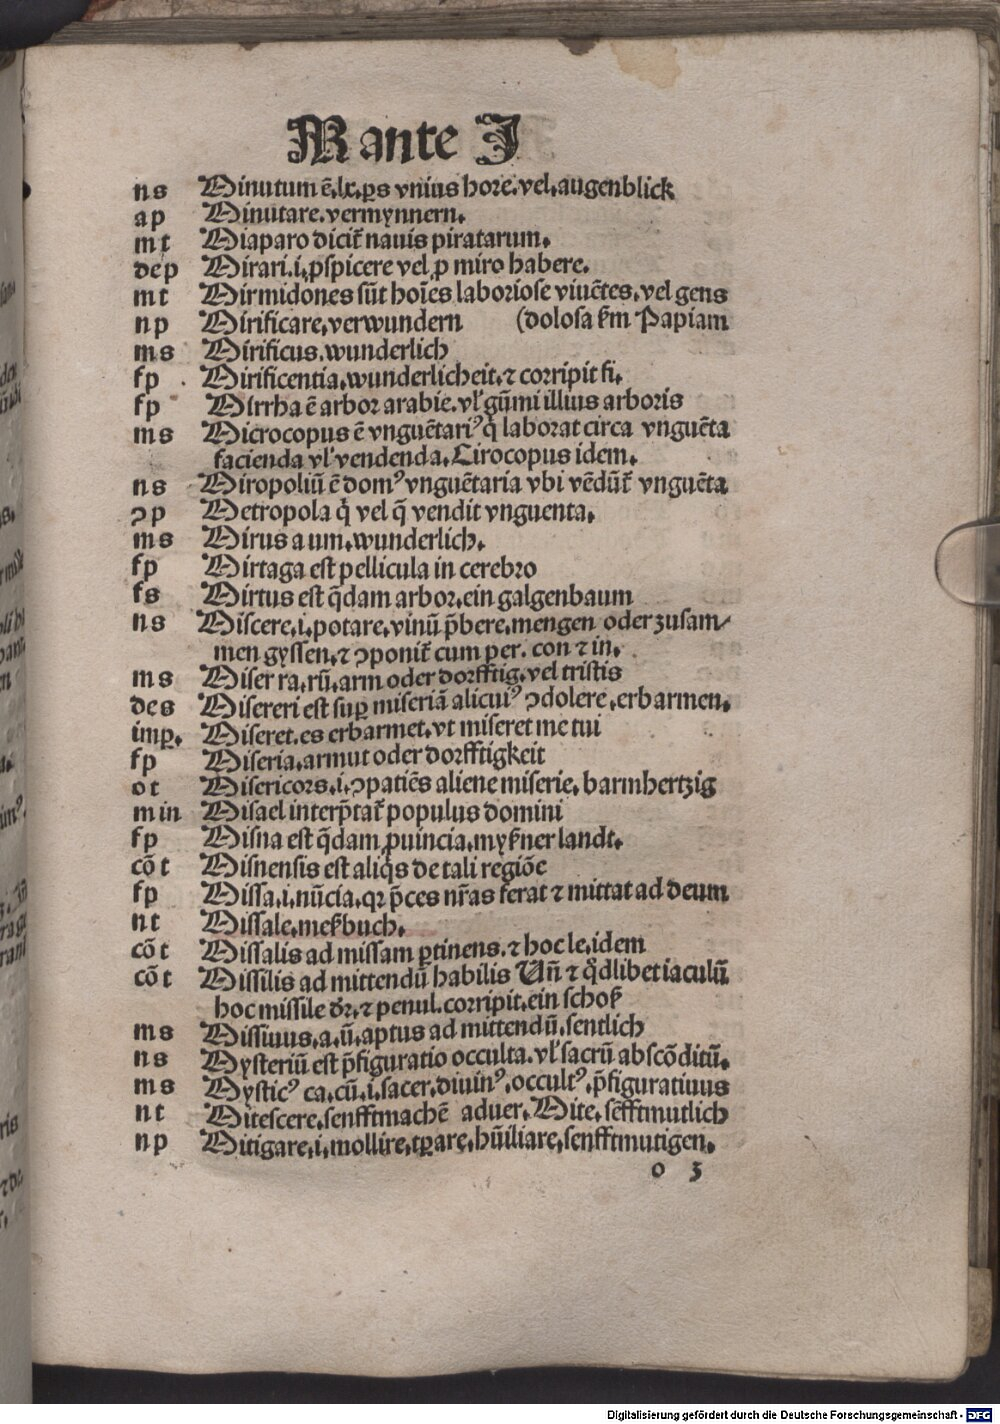 M ante I
ns Minutum ē.lx.ꝑs vnius hore.vel.augenblick
ap Minutare.vermynnern.
mt Miaparo dicit̃ nauis piratarum.
dep Mirari.i.ꝓspicere vel ꝓ miro habere.
mt Mirmidones sūt hoīes laboriose viuētes.vel gens
np Mirificare.verwundern (dolosa ẜm Papiam
ms Mirificus.wunderlich
fp Mirificentia.wunderlicheit.⁊ corripit fi.
fp Mirrha ē arbor arabie.vl' gūmi illius arboris
ms Microcopus ē vnguētariꝰ q̇ laborat circa vnguēta
facienda vl' vendenda.Cirocopus idem.
ns Miropoliū ē domꝰ vnguētaria vbi vēdūt̃ vnguēta
ꝯp Metropola q̇ vel q̄ vendit vnguenta.
ms Mirus a um.wunderlich.
fp Mirtaga est pellicula in cerebro
fs Mirtus est q̄dam arbor.ein galgenbaum
ns Miscere.i.potare.vinū p̄bere.mengen oder zusam⸗
men gyssen.⁊ ꝯponit̃ cum per. con ⁊ in.
ms Miser ra.rū.arm oder dorfftig.vel tristis
des Misereri est suꝑ miseriā alicuiꝰ ꝯdolere.erbarmen.
imꝑ. Miseret.es erbarmet.vt miseret me tui
fp Miseria.armut oder dorfftigkeit
ot Misericors.i.ꝯpatiēs aliene miserie.barmhertzig
min Misael interp̄tat̃ populus domini
fp Misna est q̄dam ꝓuincia.myẜner landt.
cōt Misnensis est aliq̇s de tali regiōe
fp Missa.i.nūcia.qꝛ p̄ces nr̄as ferat ⁊ mittat ad deum
nt Missale.meẜbuch.
cōt Missalis ad missam ꝑtinens.⁊ hoc le.idem
cōt Missilis ad mittendū habilis Vn̄ ⁊ q̇dlibet iaculū
hoc missile dr̄.⁊ penul.corripit.ein schoẜ
ms Missiuus.a.ū.aptus ad mittendū.sentlich
ns Mysteriū est p̄figuratio occulta.vl' sacrū abscōditū.
ms Mysticꝰ ca.cū.i.sacer.diuinꝰ.occultꝰ.p̄figuratiuus
nt Mitescere.senfftmachē aduer.Mite.sēfftmutlich
np Mitigare.i.mollire.tꝑare.hūiliare.senfftmutigen.
o 3
Digitalisierung gefördert durch die Deutsche Forschungsgemeinschaft - DFG